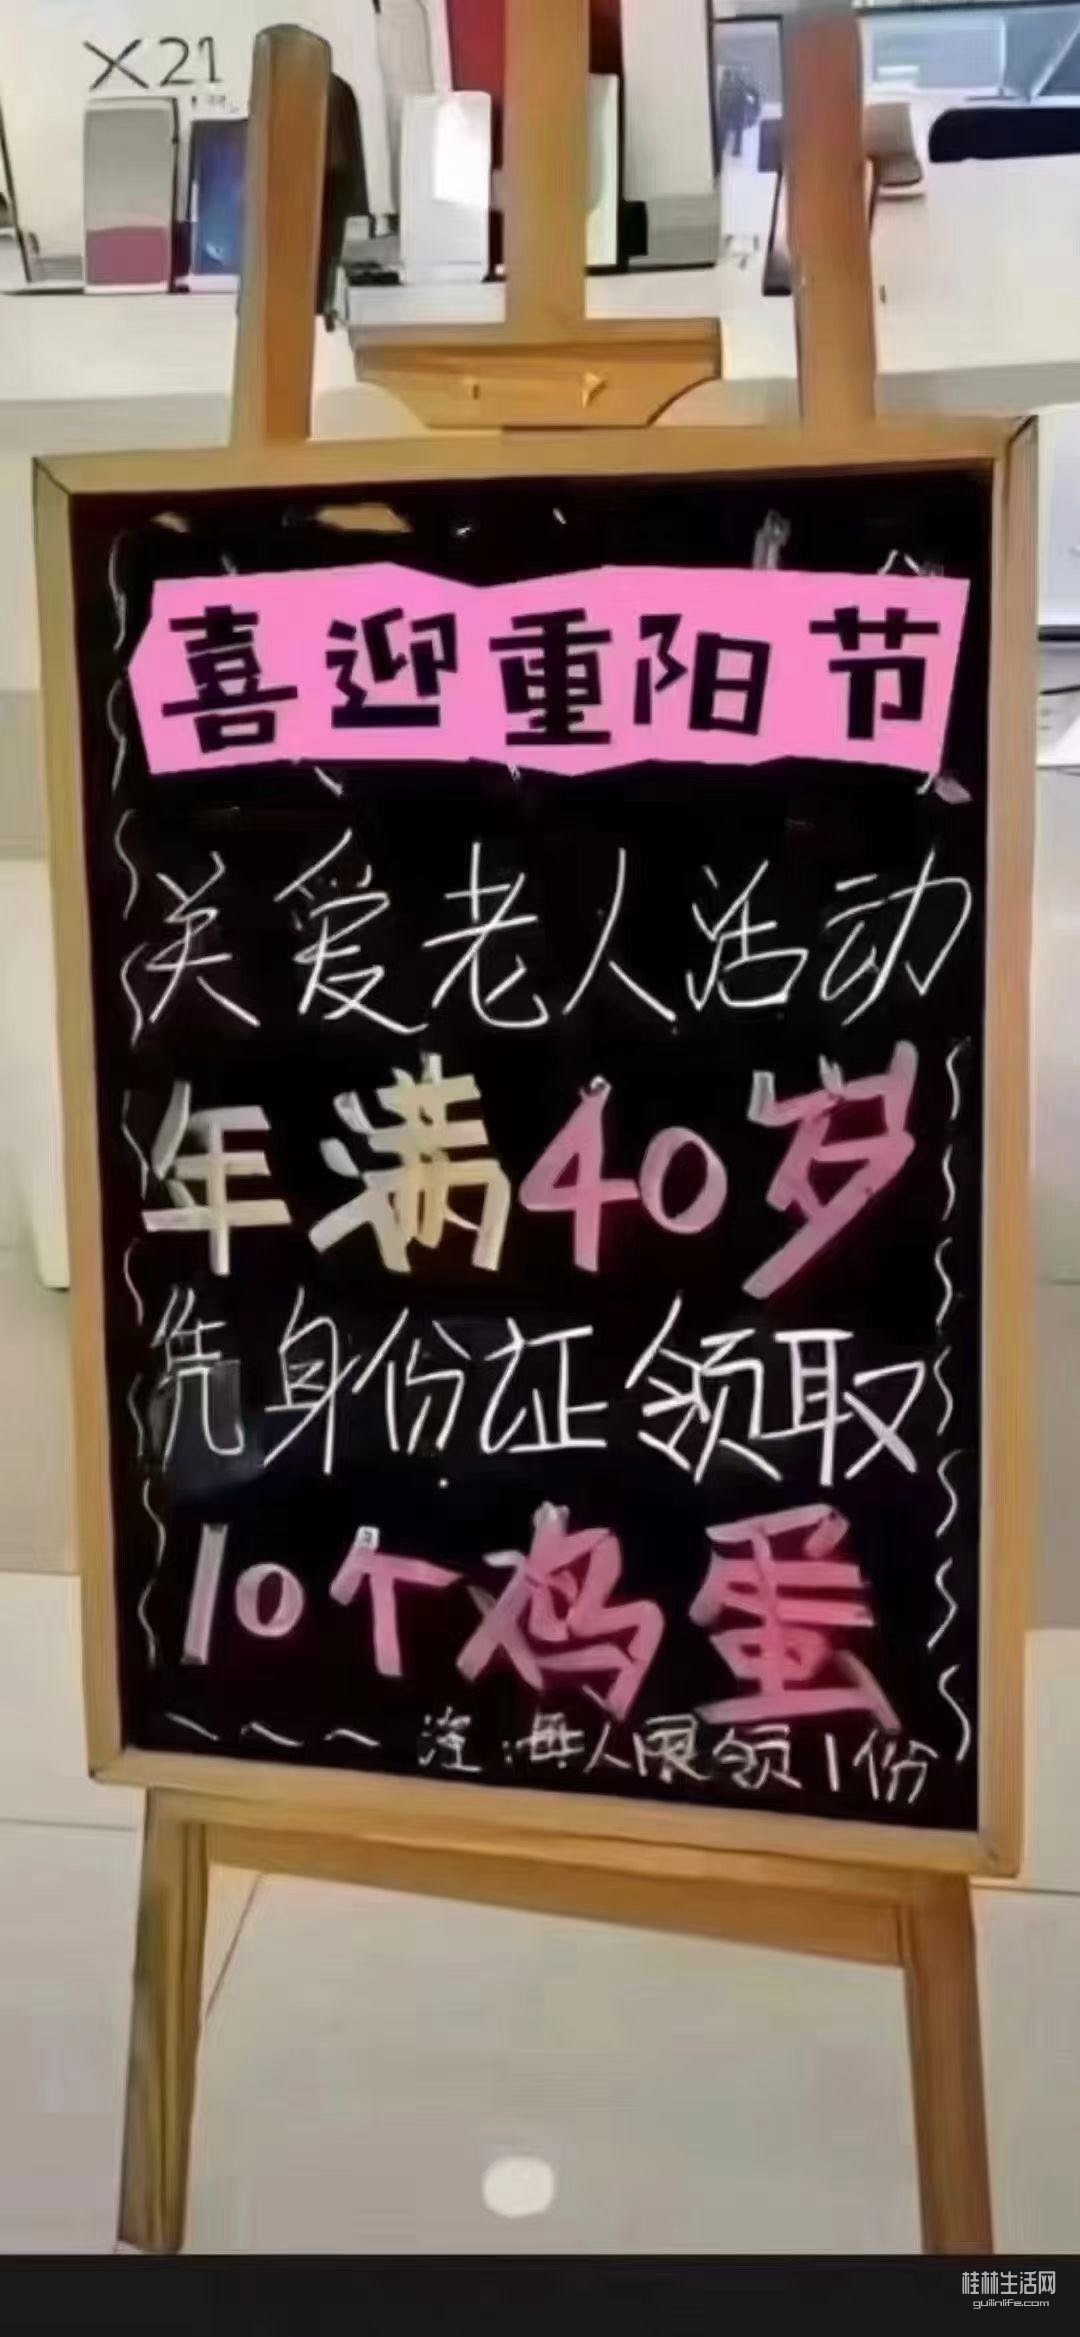 X21
喜迎重阳节
关爱老人活动
年满40岁
凭身份证领取
10个鸡蛋
注:每人限领1份
桂林生活网
guilinlife.com